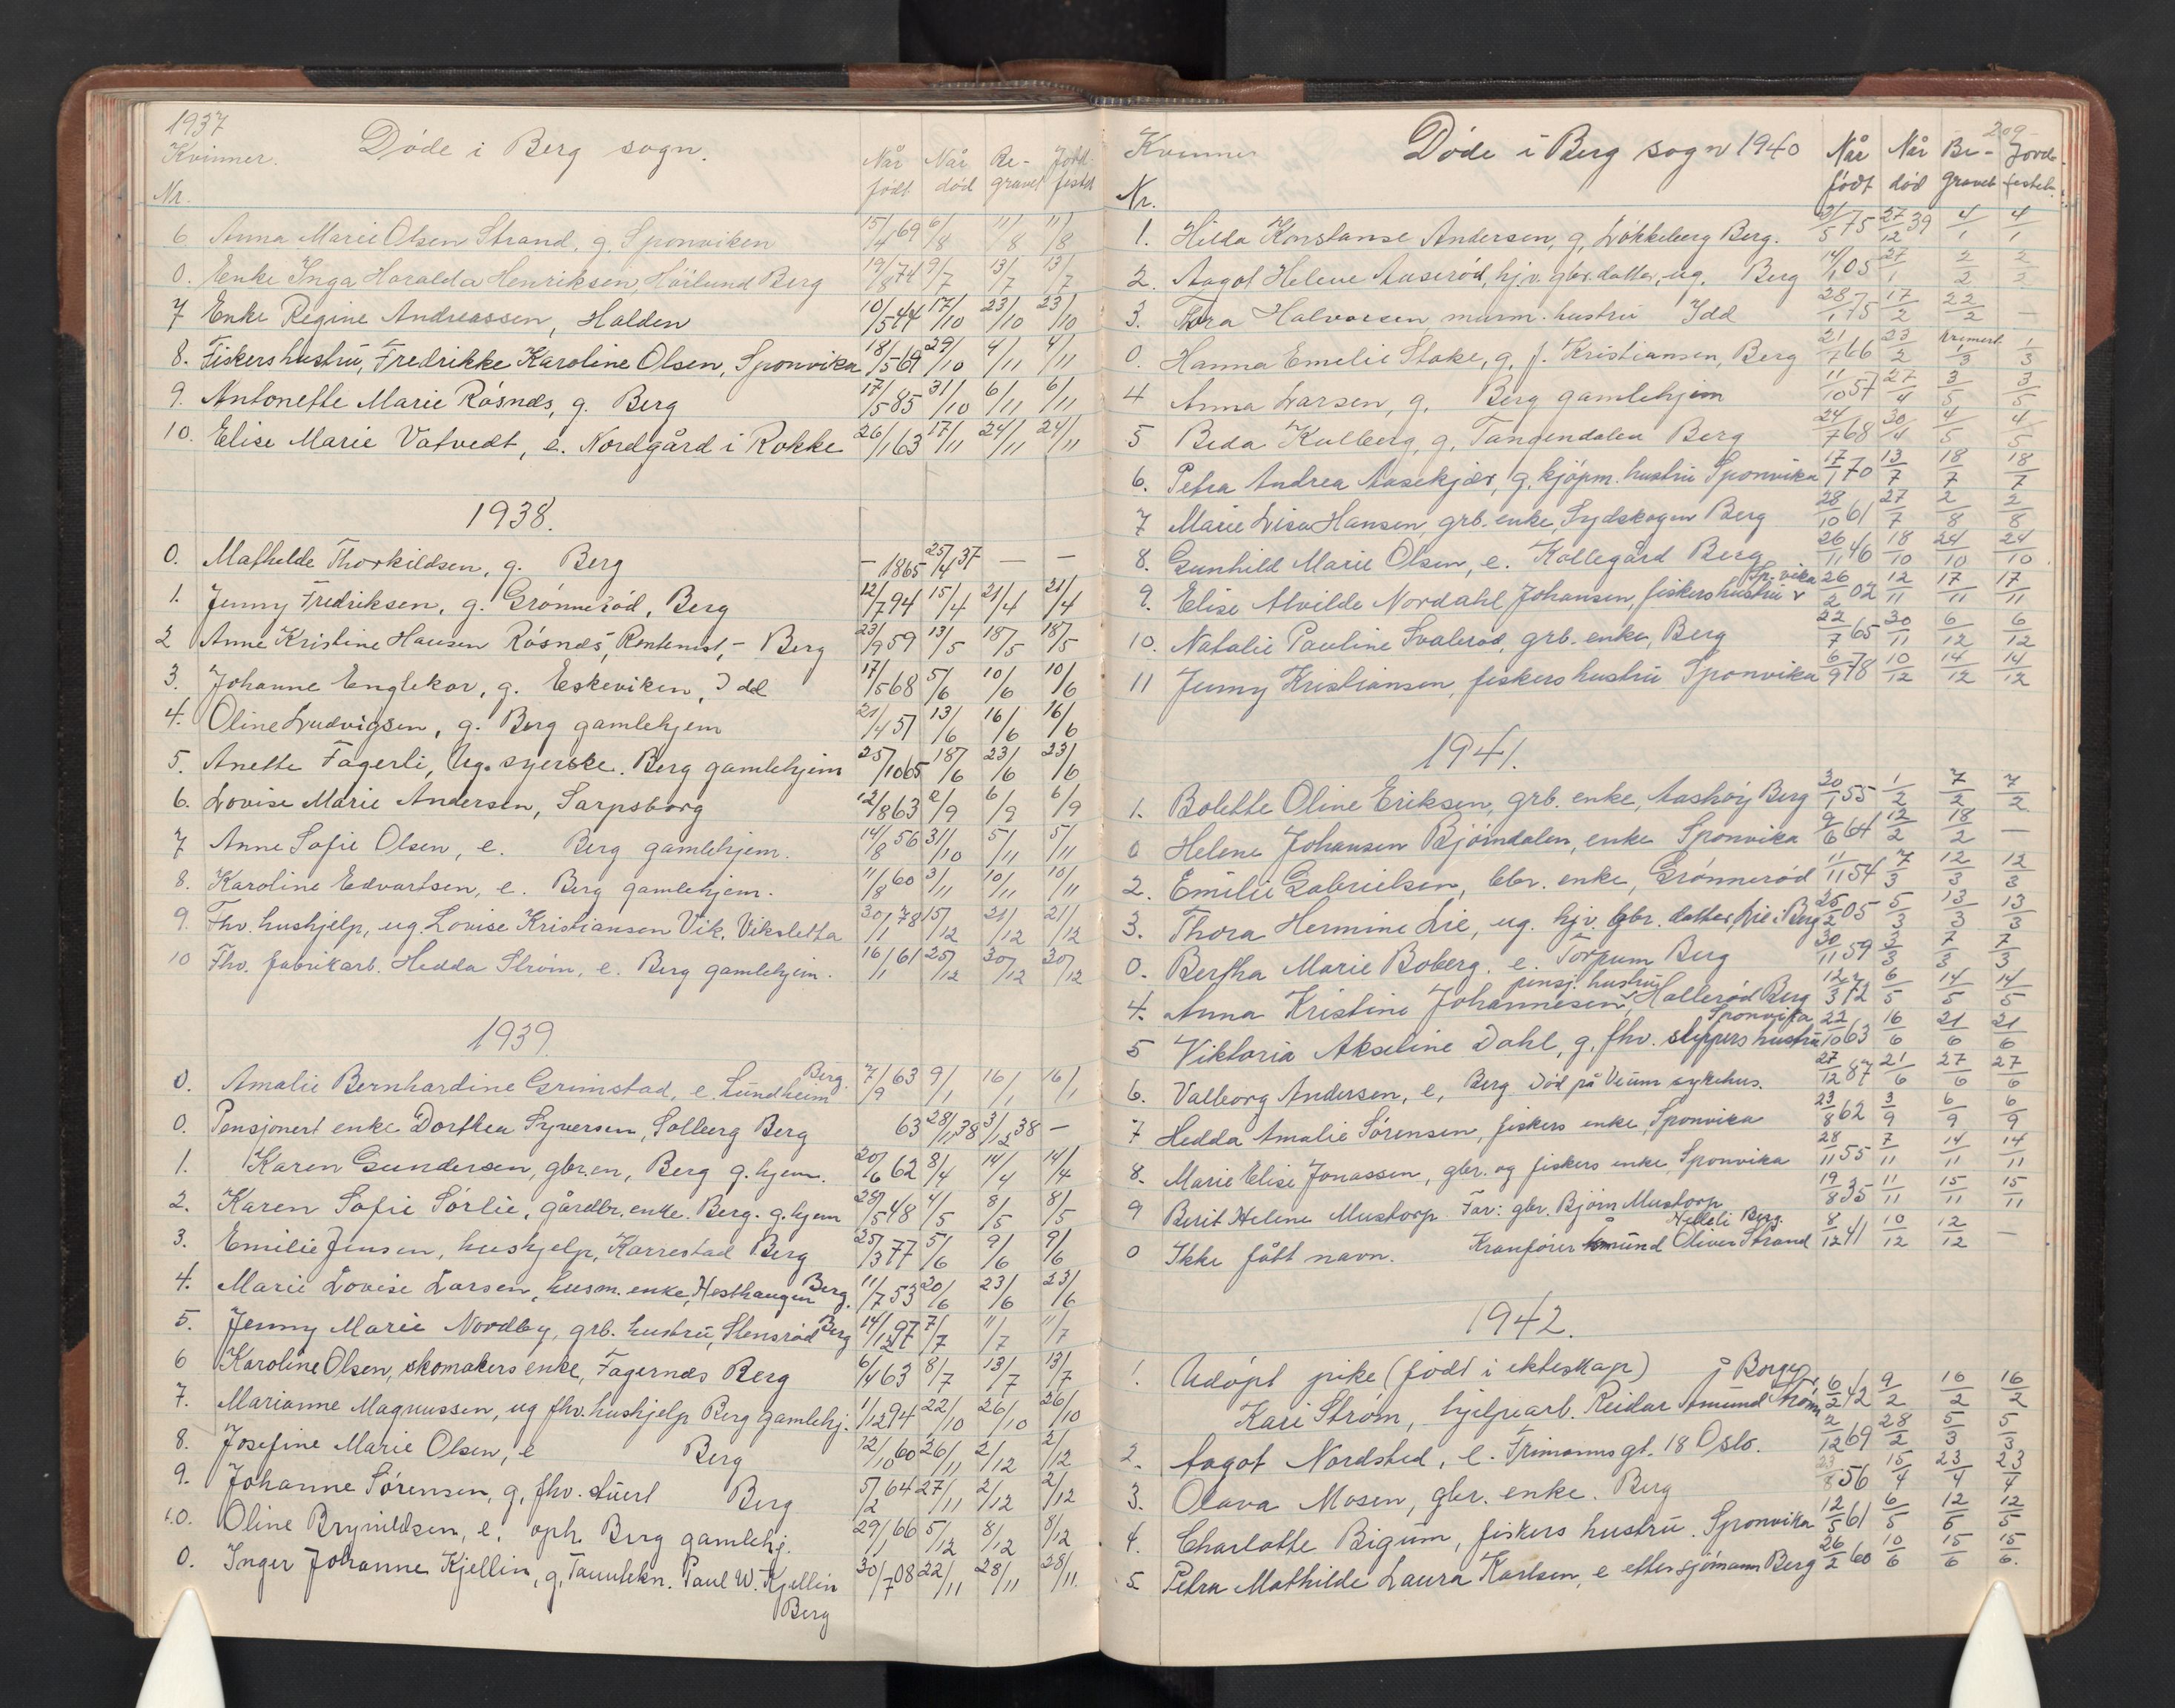 1937
Kvinner. Døde i Berg sogn.
Nr. Når født Når død Begravet Jordfestet
6 Anna Marie Olsen Strand, g. Sponviken 15/4 69 6/8 11/8 11/8
0. Enke Inga Haralda Henriksen, Höilund Berg 19/8 74 9/7 13/7 13/7
7 Enke Regine Andreassen, Halden 10/5 44 17/10 23/10 23/10
8. Fiskers hustru, Fredrikke Karoline Olsen, Sponvika 18/5 69 29/10 4/11 4/11
9. Antonette Marie Røsnæs, g. Berg 17/5 85 31/10 6/11 6/11
10. Elise Marie Vatvedt, e. Nordgård i Rokke 26/1 63 17/11 24/11 24/11
1938.
0. Mathilde Thorkildsen, g. Berg – 1865 25/4 37 — —
1. Jenny Fredriksen, g. Grønnerød, Berg 12/7 94 15/4 21/4 21/4
2 Anne Kristine Hansen Røsnæs, Rentenist, - Berg 23/9 59 13/5 18/5 18/5
3. Johanne Englekor, g. Eskeviken, Idd 17/5 68 5/6 10/6 10/6
4. Oline Ludvigsen, g. Berg gamlehjem 21/4 51 13/6 16/6 16/6
5. Anette Fagerli, Ug. syerske. Berg gamlehjem 25/10 65 18/6 23/6 23/6
6. Lovise Marie Andersen, Sarpsborg 12/8 63 2/9 6/9 6/9
7 Anne Sofie Olsen, e. Berg gamlehjem. 14/8 56 31/10 5/11 5/11
8. Karoline Edvartsen, e. Berg gamlehjem. 11/8 60 3/11 10/11 10/11
9. Fhv. hushjelp, ug. Lovise Kristiansen Vik, Viksletta 30/1 78 15/12 21/12 21/12
10 Fhv. fabrikarb. Hedda Strøm, e. Berg gamlehjem. 16/1 61 25/12 30/12 30/12
1939.
0. Amalie Bernhardine Grimstad, e. Lundheim Berg. 7/9 63 9/1 16/1 16/1
0. Pensjonert enke Dorthea Syversen, Solberg Berg 63 28/11 38 3/12 38 —
1. Karen Gundersen, gbr.en, Berg g. hjem. 20/6 62 8/4 14/4 14/4
2. Karen Sofie Sørlie, gårdbr. enke. Berg. g. hjem 28/5 48 4/5 8/5 8/5
3. Emilie Jensen, hushjelp, Karrestad Berg 25/3 77 5/6 9/6 9/6
4. Marie Lovise Larsen, husm. enke, Hesthaugen Berg. 11/7 53 20/6 23/6 23/6
5. Jenny Marie Nordby, grb. hustru, Stensrød Berg 14/12 97 7/7 11/7 11/7
6 Karoline Olsen, skomakers enke, Fagernæs Berg 6/4 63 8/7 13/7 13/7
7. Marianne Magnussen, ug fhv. hushjelp Berg gamlehj. 1/12 94 22/10 26/10 26/10
8. Josefine Marie Olsen, e Berg 12/10 60 26/11 2/12 2/12
9. Johanne Sørensen, g, fhv. stuert Berg 5/2 64 27/11 2/12 2/12
10. Oline Brynildsen, e. oph. Berg gamlehj. 29/1 66 5/12 8/12 8/12
0. Inger Johanne Kjellin, g, Tannlekn. Paul W. Kjellin 30/7 08 22/11 28/11 28/11.
Berg
209
Kvinner Døde i Berg sogn 1940
Nr. Når født Når død Begravet Jordfestet.
1. Hilda Konstanse Andersen, g, Løkkeberg Berg. 21/5 75 27/12 39 4/1 4/1
2. Aagot Helene Aaserød, hj.v. gbr. datter, ug. Berg 14/1 05 27/1 2/2 2/2
3. Thora Halvorsen, murm. hustru Idd 28/1 75 17/2 22/2 —
0. Hanna Emelie Stake, g, f. Kristiansen, Berg 21/7 66 23/2 kremert 1/3 1/3
4 Anna Larsen, g, Berg gamlehjem 11/10 57 27/4 3/5 3/5
5 Beda Kulberg, g, Tangendalen Berg 24/7 68 30/4 4/5 4/5
6. Petra Andrea Aasekjær, g, kjøpm. hustru Sponvika 17/1 70 13/7 18/7 18/7
7 Marie Lisa Hansen, grb. enke, Sydskogen Berg 28/10 61 27/7 2/8 2/8
8. Gunhild Marie Olsen, e. Kollegård Berg 26/11 46 18/10 24/10 24/10
9. Elise Alvilde Nordahl Johansen, fiskers hustru Sp.vika 26/2 02 12/11 17/11 17/11
10. Natalie Pauline Svalerød, grb. enke, Berg 22/7 65 30/11 6/12 6/12
11 Jenny Kristiansen, fiskers hustru Sponvika 6/9 78 10/12 14/12 14/12
1941.
1. Bolette Oline Eriksen, grb. enke, Aashøy Berg 30/1 55 1/2 7/2 7/2
0 Helene Johansen Bjørndalen, enke Sponvika 9/6 64 12/2 18/2 —
2. Emilie Gabrielsen, bbr. enke, Grønnerød 11/11 54 7/3 12/3 12/3
3. Thora Hermine Lie, ug. hjv. gbr. datter, Lie i Berg 25/2 05 5/3 13/3 13/3
0. Bertha Marie Boberg. e. Torpum Berg 30/11 59 3/3 7/3 7/3
4. Anna Kristine Johannesen, pensj. hustru Hallerød Berg 12/3 72 6/5 14/5 14/5
5 Viktoria Akseline Dahl, g, fhv. skippers hustru Sponvika 22/10 63 16/6 21/6 21/6
6. Valborg Andersen, e, Berg Død på Veum sykehus. 27/12 87 21/6 27/6 27/6
7 Hedda Amalie Sørensen, fiskers enke, Sponvika 23/8 62 3/9 6/9 6/9
8. Marie Elise Jonassen, gbr. og fiskers enke, Sponvika 28/11 55 7/11 14/11 14/11
9 Berit Helene Mustorp. Far: gbr. Bjørn Mustorp 19/8 35 11/11 15/11 15/11
0 Ikke fått navn. Kranfører Åmund Oliver Strand Helleli Berg. 8/12 41 10/12 12/12 —
1942.
1. Udøpt pike (født i ekteskap) på Borge
Kari Strøm, hjelpearb. Reidar Amund Strøm 6/2 42 9/2 16/2 16/2
2. Aagot Nordsted, e. Frimannsgt. 18 Oslo. 2/12 69 28/2 5/3 5/3
3. Olava Mosen, gbr. enke. Berg 23/8 56 15/4 23/4 23/4
4. Charlotte Bigum, fiskers hustru. Sponvika 12/5 61 6/5 12/5 12/5
5 Petra Mathilde Laura Karlsen, e etter sjømann Berg 26/2 60 10/6 15/6 15/6.